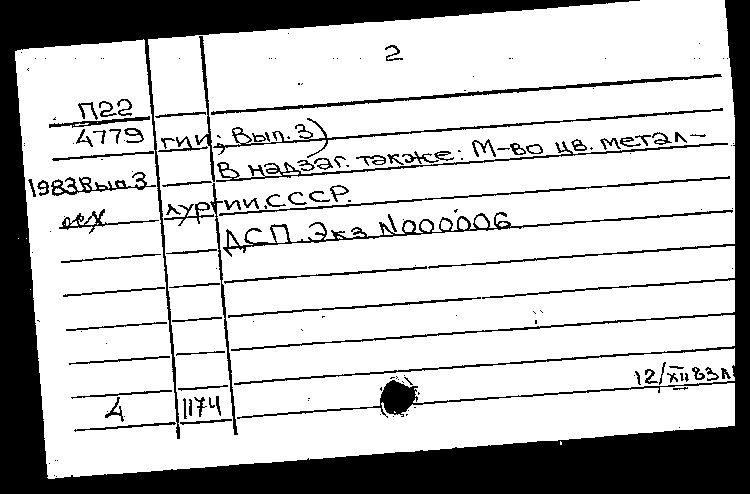 2
П22
4779 гии; Вып.3)
В надзаг. также: М-во цв. метал-
1983 Вып 3
лургии СССР.
ДСП. Экз N000006
4 1174
12/XII 83